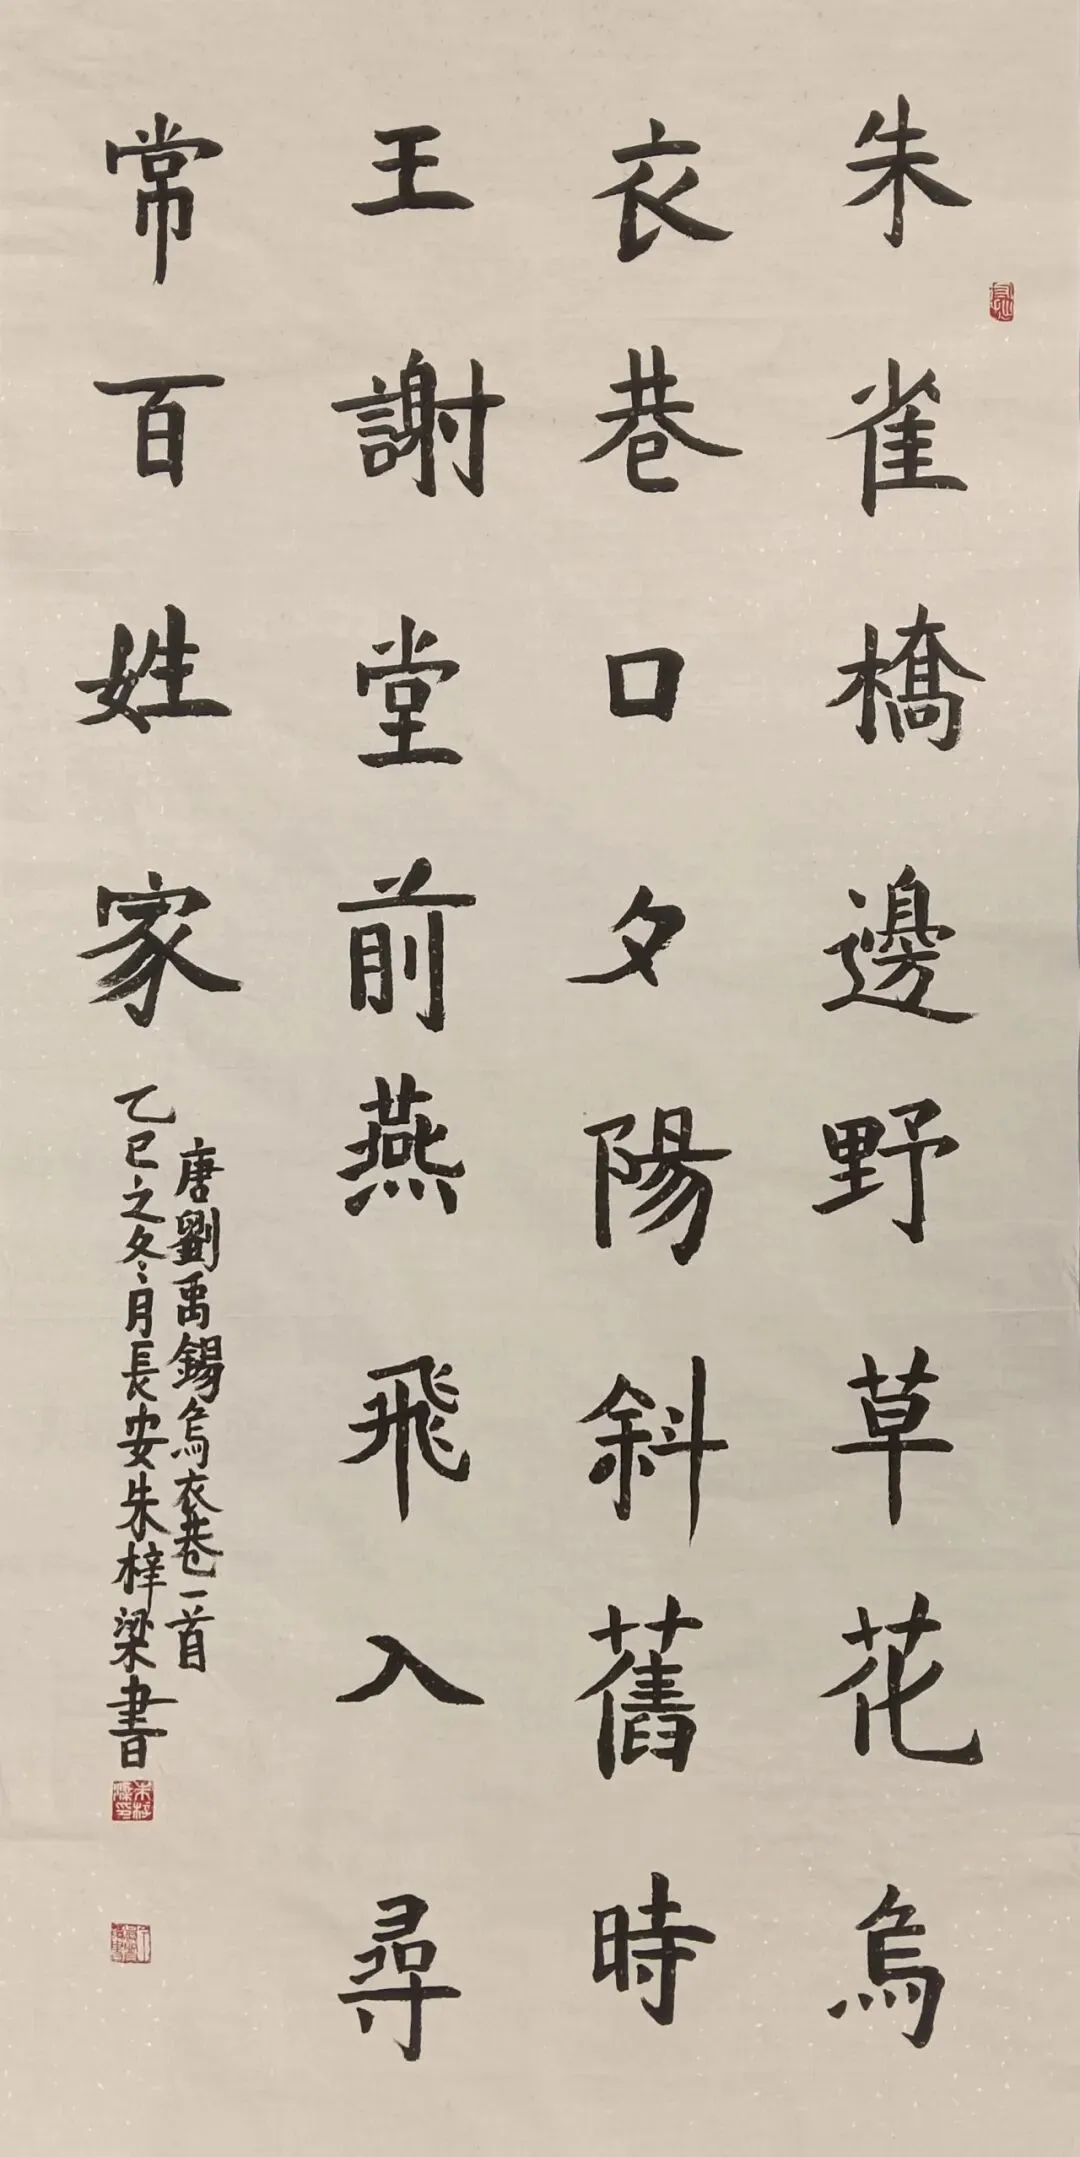 朱雀橋邊野草花烏
衣巷口夕陽斜舊時
王謝堂前燕飛入尋
常百姓家
唐劉禹錫烏衣巷一首
乙巳之冬月長安朱梓梁書